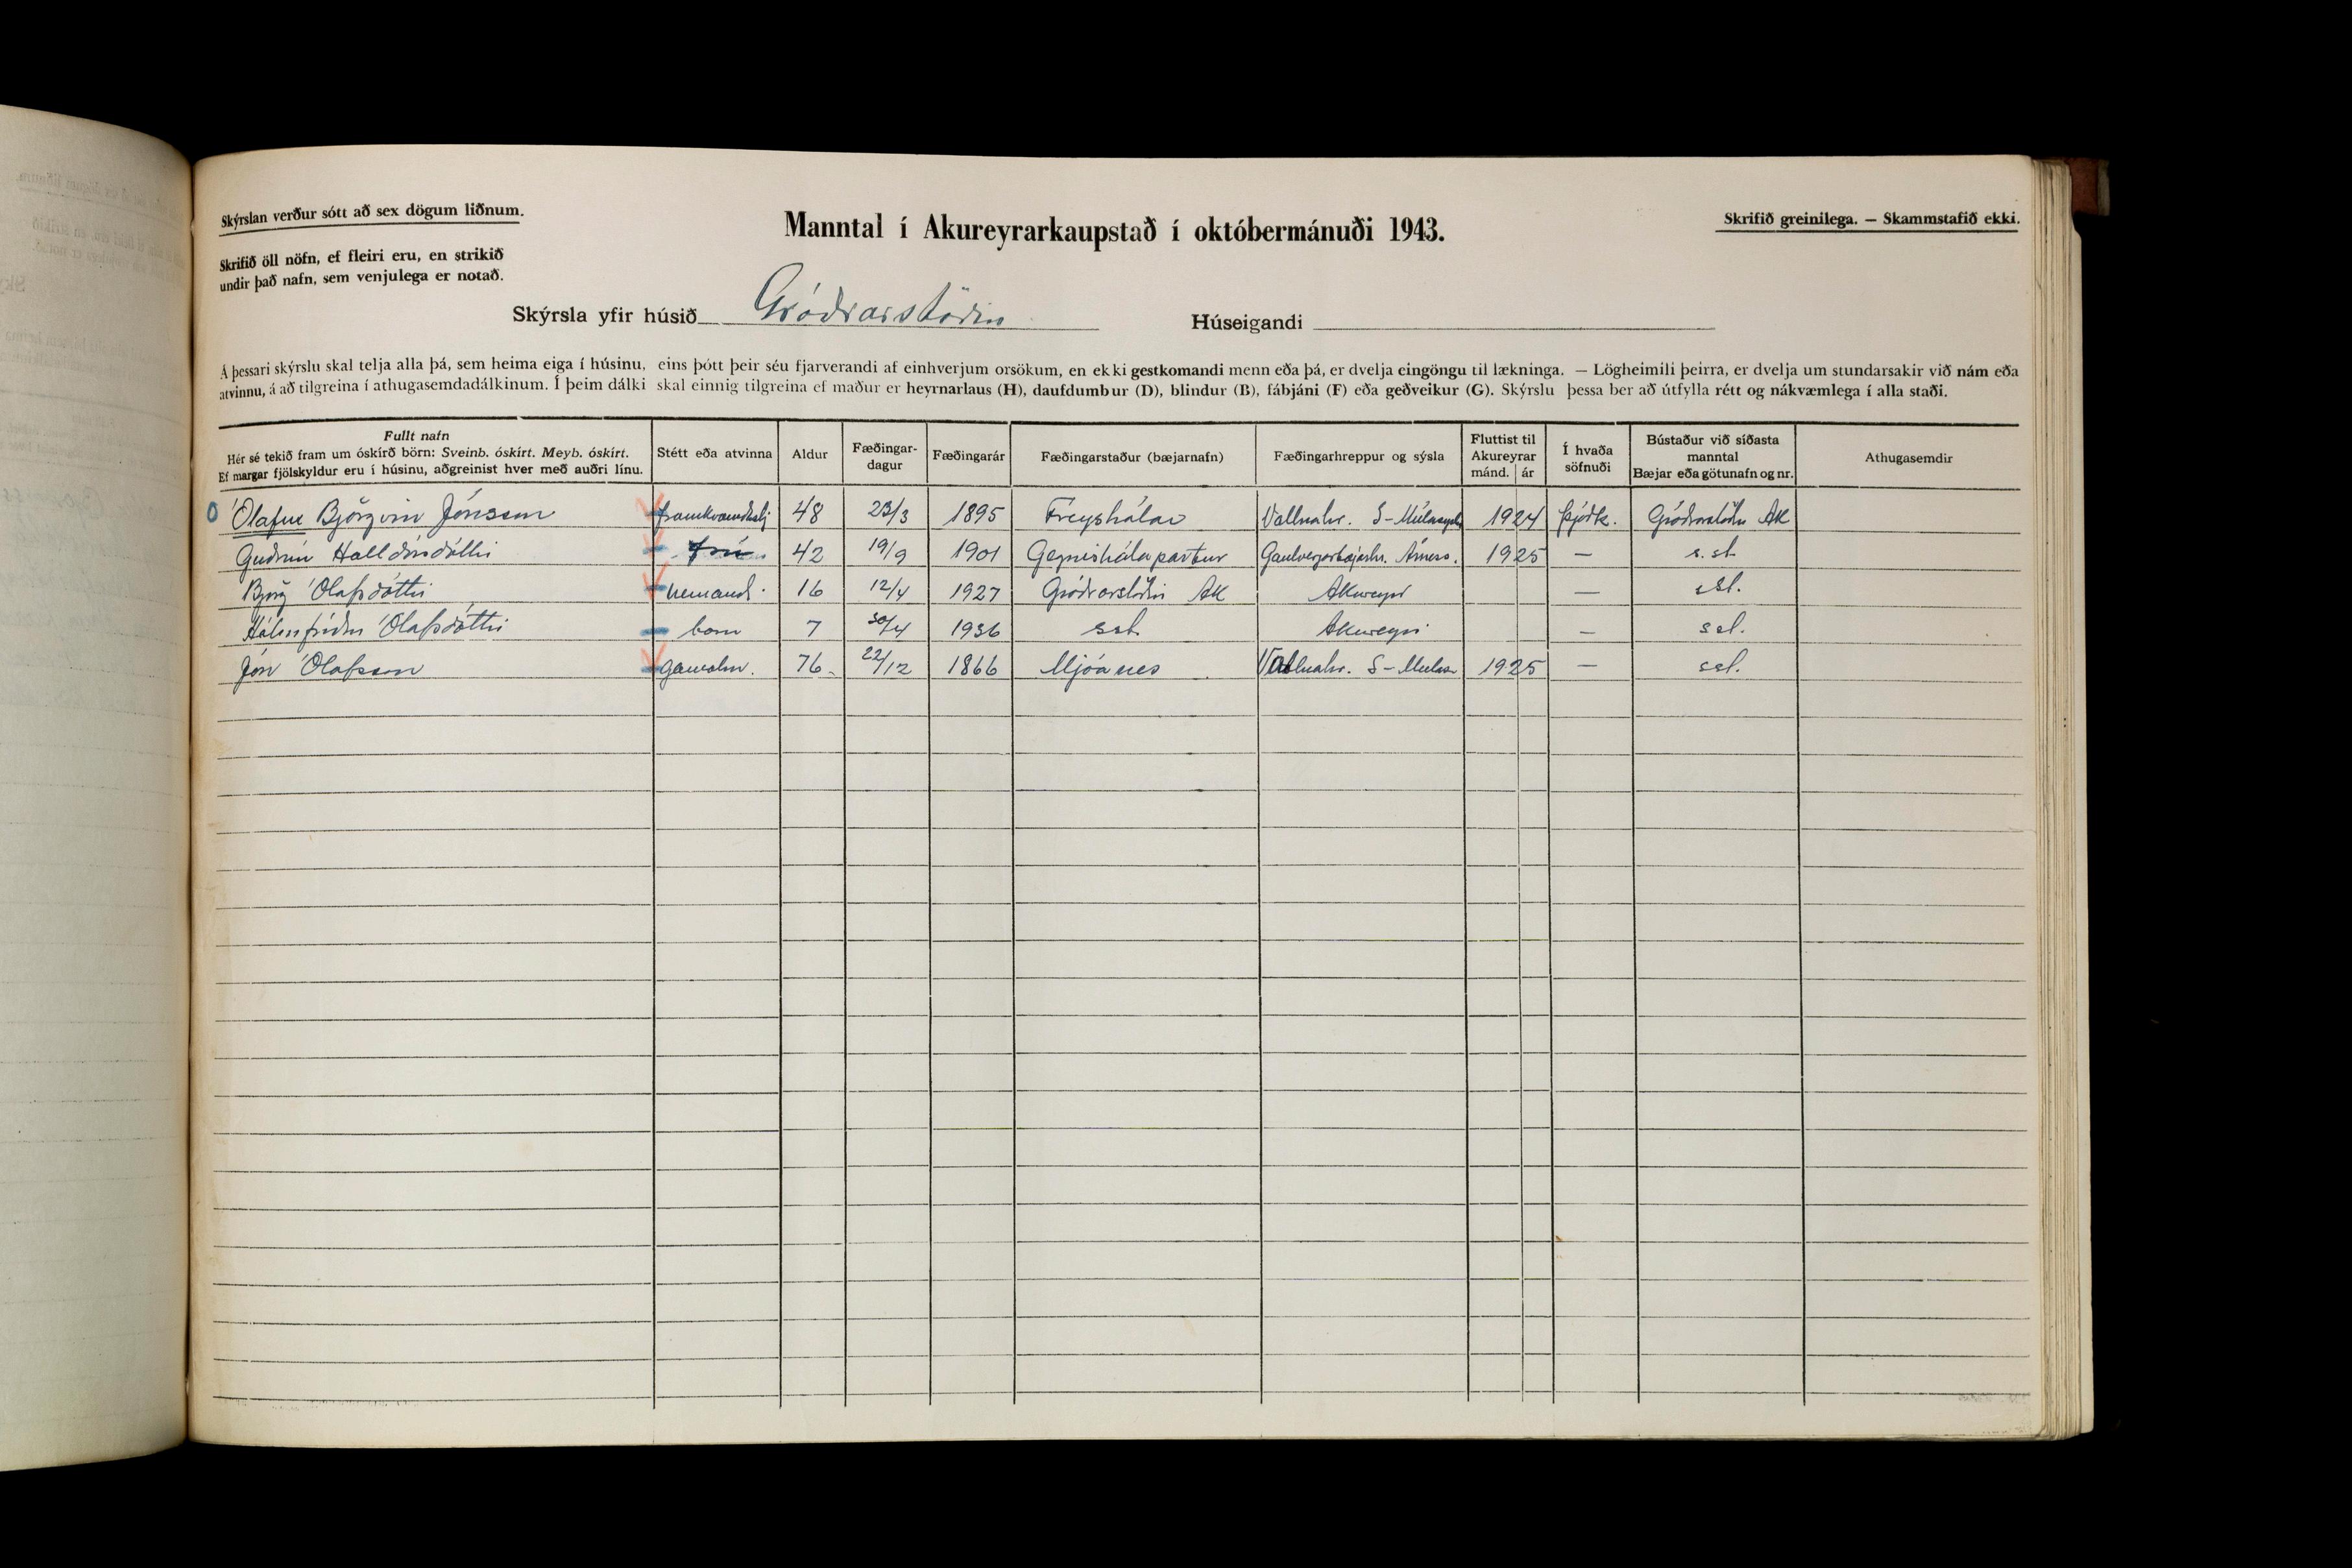 Skýrslan verður sótt að sex dögum liðnum.
Manntal í Akureyrarkaupstað í októbermánuði 1943.
Skrifið greinilega. — Skammstafið ekki.
Skrifið öll nöfn, ef fleiri eru, en strikið
undir það nafn, sem venjulega er notað.
Skýrsla yfir húsið Gróðrarstöðin Húseigandi
Á þessari skýrslu skal telja alla þá, sem heima eiga í húsinu, eins þótt þeir séu fjarverandi af einhverjum orsökum, en ekki gestkomandi menn eða þá, er dvelja eingöngu til lækninga. — Lögheimili þeirra, er dvelja um stundarsakir við nám eða
atvinnu, á að tilgreina í athugasemdadálkinum. Í þeim dálki skal einnig tilgreina ef maður er heyrnarlaus (H), daufdumbur (D), blindur (B), fábjáni (F) eða geðveikur (G). Skýrslu þessa ber að útfylla rétt og nákvæmlega í alla staði.
Fullt nafn
Hér sé tekið fram um óskírð börn: Sveinb. óskírt. Meyb. óskírt.
Ef margar fjölskyldur eru í húsinu, aðgreinist hver með auðri línu.
Stétt eða atvinna
Aldur
Fæðingar-
dagur
Fæðingarár
Fæðingarstaður (bæjarnafn)
Fæðingarhreppur og sýsla
Fluttist til
Akureyrar
mánd. ár
Í hvaða
söfnuði
Bústaður við síðasta
manntal
Bæjar eða götunafn og nr.
Athugasemdir
Ólafur Björgvin Jónsson framkvæmdastj 48 23/3 1895 Freyshólar Vallnahr. S-Múlasýsla 1924 þjóðk. Gróðrarstöðin AK
Guðrún Halldórsdóttir frú 42 19/9 1901 Gegnishólapartur Gaulverjarbæjarhr. Árness. 1925 — s.st.
Björg Ólafsdóttir nemandi 16 12/4 1927 Gróðrarstöðin AK Akureyri — sst.
Hólmfríður Ólafsdóttir barn 7 30/4 1936 sst. Akureyri — sst.
Jón Ólafsson gamalm. 76 22/12 1866 Mjóanes Vallnahr. S-Múlas 1925 — sst.